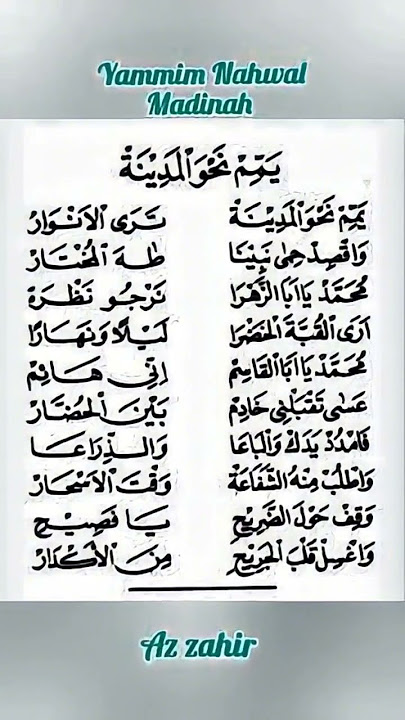 Yammim Nahwal
Madinah
يَمِّمْ نَحْوَالْمَدِيْنَةْ
يَمِّمْ نَحْوَالْمَدِيْنَةْ تَرَى الْاَنْوَارْ
وَاقْصِدْ حِمٰى نَبِيْنَا طٰهَ الْمُخْتَارْ
مُحَمَّدْ يَااَبَا الزَّهْرَا نَرْجُو نَظْرَةْ
اَرَى الْقُبَّةَ الْخَضْرَا لَيْلًا وَنَهَارًا
مُحَمَّدْ يَااَبَاالْقَاسِمْ اِنِّي هَائِمْ
عَسٰى تَقْبَلْنِي خَادِمْ بَيْنَ الْحُضَّارْ
فَامْدُدْ يَدَكْ وَالْبَاعَا وَالذِّرَاعَا
وَاطْلُبْ مِنْهُ الشَّفَاعَةْ وَقْتَ الْاَسْحَارْ
وَقِفْ حَوْلَ الضَّرِيْحِ يَا فَصِيْحِ
وَاغْسِلْ قَلْبَ الْجَرِيْحِ مِنَ الْأَكْدَارْ
Az zahir